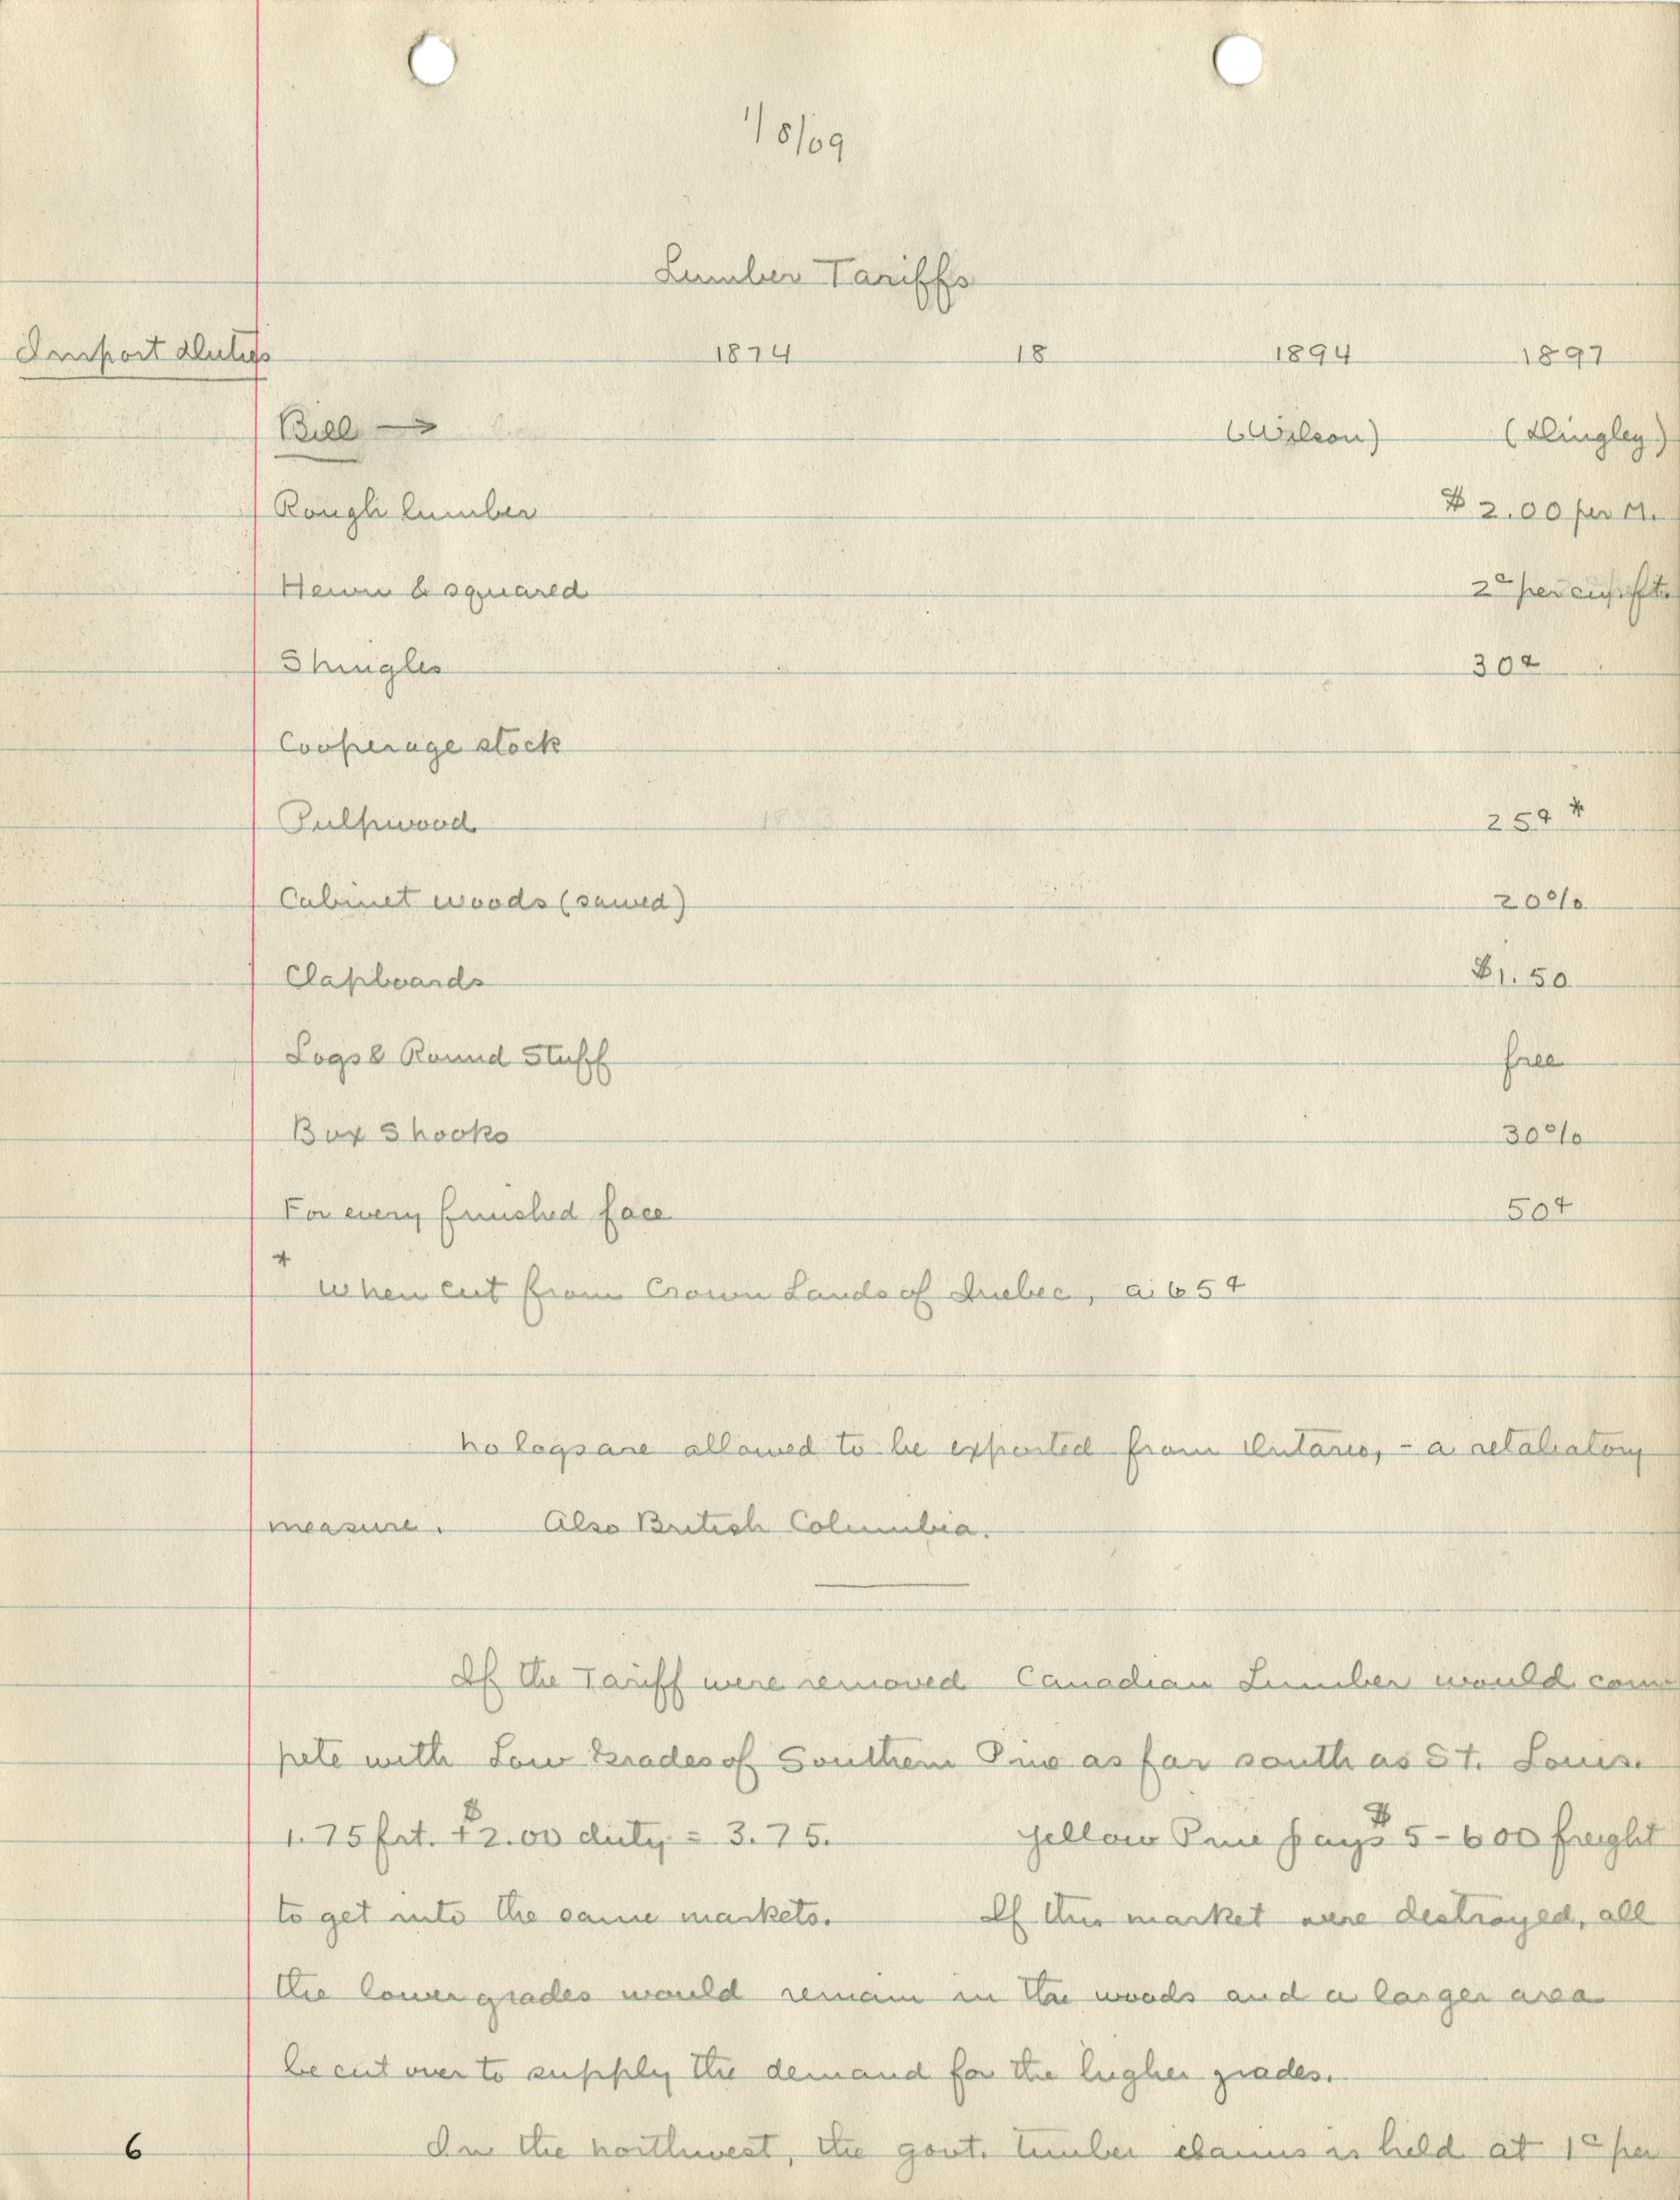 1/8/09
Lumber Tariffs
Import duties 1874 18 1894 1897
Bill → (Wilson) (Dingley)
Rough lumber $2.00 per M.
Hewn & squared 2c per cu. ft.
Shingles 30¢
Cooperage stock
Pulpwood 25¢ *
Cabinet woods (sawed) 20%
Clapboards $1.50
Logs & Round Stuff free
Box Shooks 30%
For every finished face 50¢
* When cut from Crown Lands of Quebec, 65¢
No logs are allowed to be exported from Ontario, - a retaliatory
measure. Also British Columbia.
If the Tariff were removed Canadian Lumber would com
pete with Low Grades of Southern Pine as far south as St. Louis.
1.75 frt. + $2.00 duty = 3.75. Yellow Pine pays $5-600 freight
to get into the same markets. If this market were destroyed, all
the lower grades would remain in the woods and a larger area
be cut over to supply the demand for the higher grades.
6 In the northwest, the govt. timber claims is held at 1c per